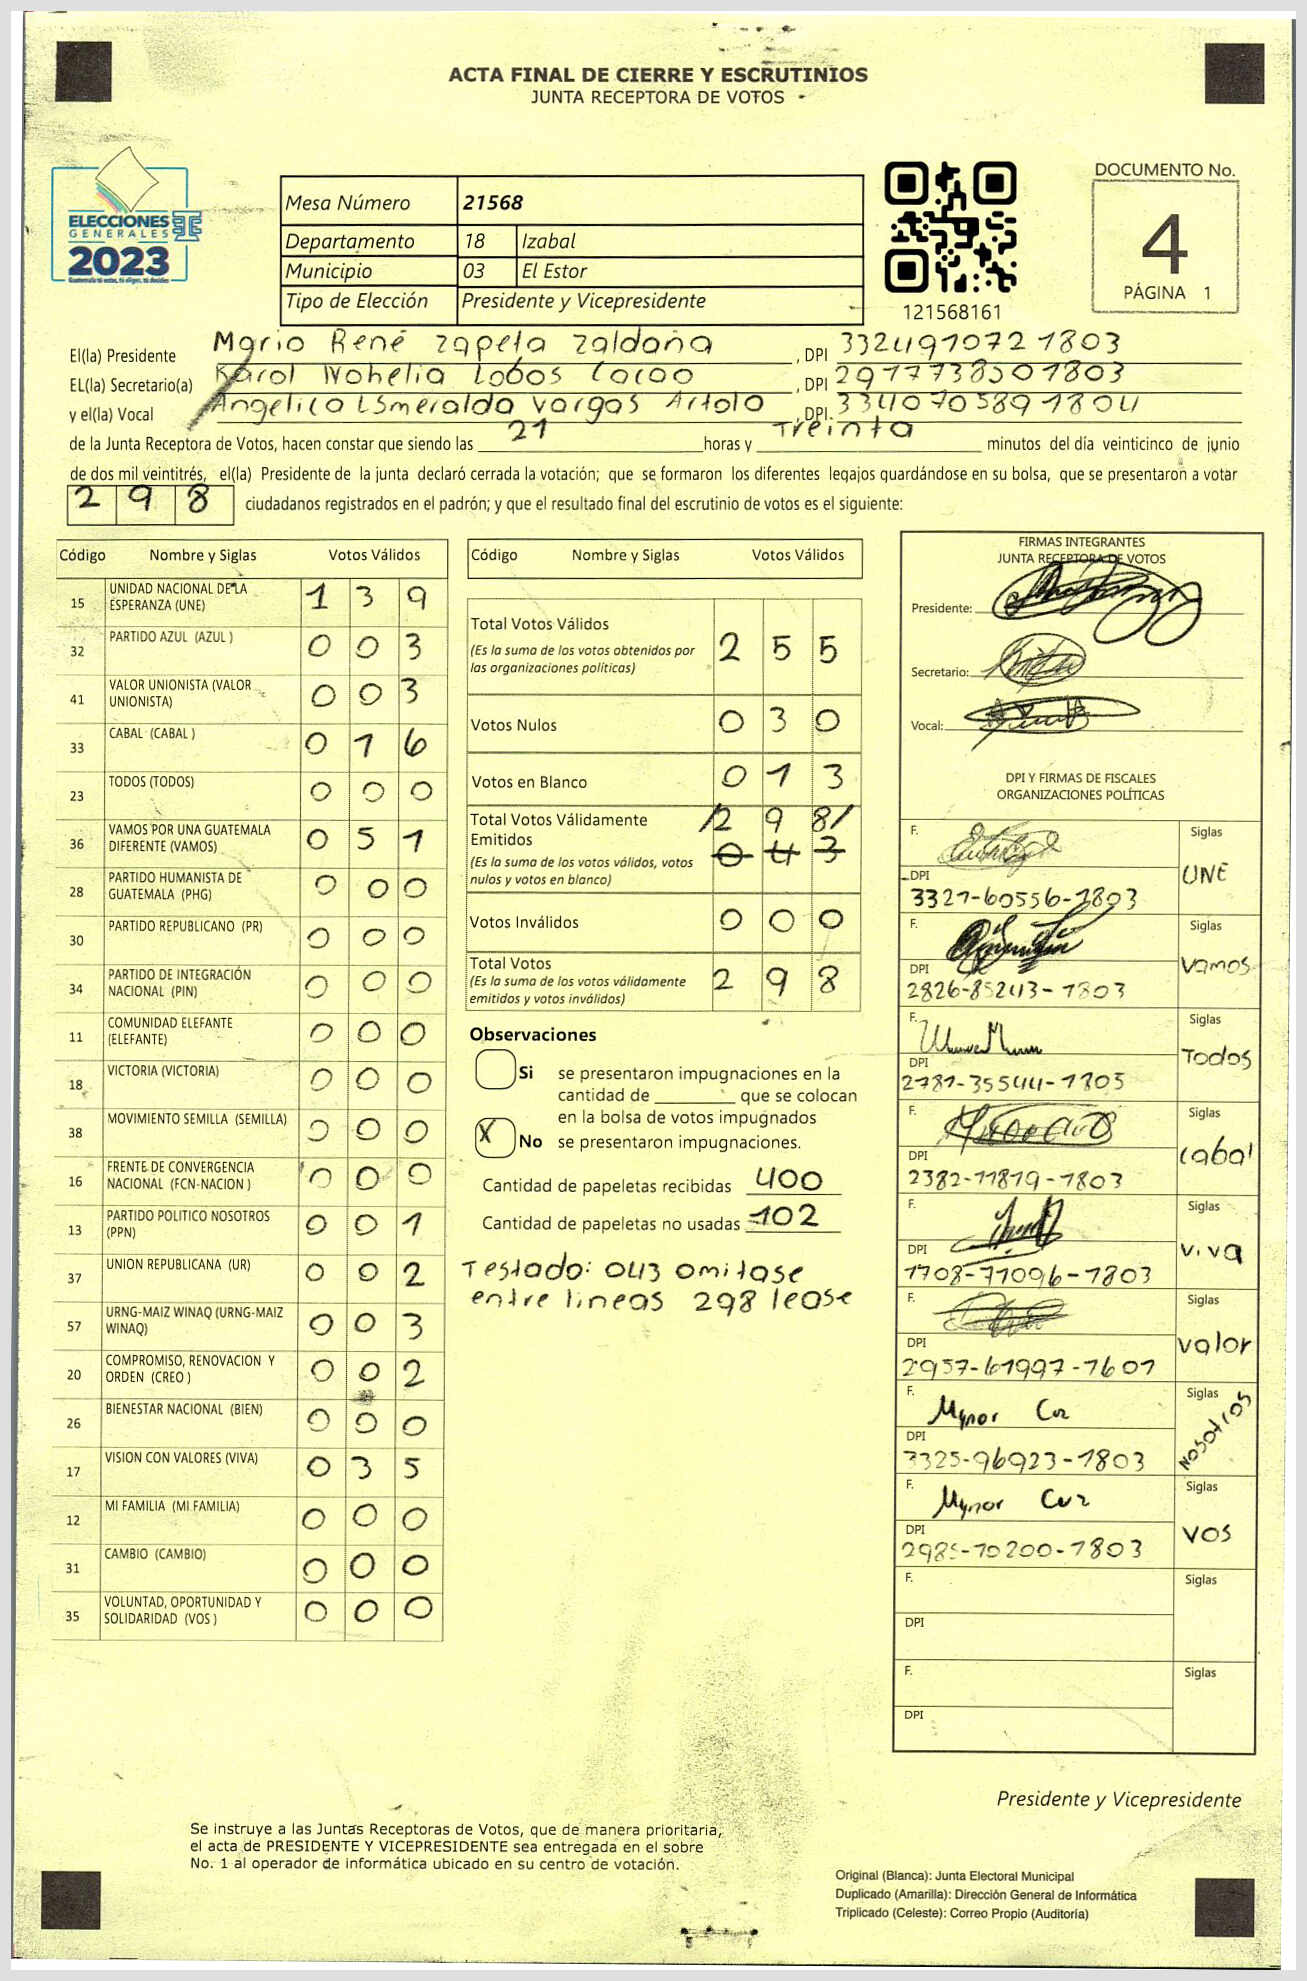 ACTA FINAL DE CIERRE Y ESCRUTINIOS
JUNTA RECEPTORA DE VOTOS
ELECCIONES
GENERALES
2023
Mesa Número 21568
Departamento 18 Izabal
Municipio 03 El Estor
Tipo de Elección Presidente y Vicepresidente
121568161
DOCUMENTO No.
4
PÁGINA 1
El(la) Presidente Mario René Zapeta Zaldaña, DPI 332491072 1803
EL(la) Secretario(a) Karol Nohelia Lobos Cacao, DPI 291773850 1803
y el(la) Vocal Angelica Esmeralda Vargas Artola, DPI. 334070589 1804
de la Junta Receptora de Votos, hacen constar que siendo las 21 horas y Treinta minutos del día veinticinco de junio
de dos mil veintitrés, el(la) Presidente de la junta declaró cerrada la votación; que se formaron los diferentes legajos guardándose en su bolsa, que se presentaron a votar
298 ciudadanos registrados en el padrón; y que el resultado final del escrutinio de votos es el siguiente:
Código Nombre y Siglas Votos Válidos
15 UNIDAD NACIONAL DE LA ESPERANZA (UNE) 1 3 9
32 PARTIDO AZUL (AZUL ) 0 0 3
41 VALOR UNIONISTA (VALOR UNIONISTA) 0 0 3
33 CABAL (CABAL ) 0 1 6
23 TODOS (TODOS) 0 0 0
36 VAMOS POR UNA GUATEMALA DIFERENTE (VAMOS) 0 5 1
28 PARTIDO HUMANISTA DE GUATEMALA (PHG) 0 0 0
30 PARTIDO REPUBLICANO (PR) 0 0 0
34 PARTIDO DE INTEGRACIÓN NACIONAL (PIN) 0 0 0
11 COMUNIDAD ELEFANTE (ELEFANTE) 0 0 0
18 VICTORIA (VICTORIA) 0 0 0
38 MOVIMIENTO SEMILLA (SEMILLA) 0 0 0
16 FRENTE DE CONVERGENCIA NACIONAL (FCN-NACION ) 0 0 0
13 PARTIDO POLITICO NOSOTROS (PPN) 0 0 1
37 UNION REPUBLICANA (UR) 0 0 2
57 URNG-MAIZ WINAQ (URNG-MAIZ WINAQ) 0 0 3
20 COMPROMISO, RENOVACION Y ORDEN (CREO ) 0 0 2
26 BIENESTAR NACIONAL (BIEN) 0 0 0
17 VISION CON VALORES (VIVA) 0 3 5
12 MI FAMILIA (MI FAMILIA) 0 0 0
31 CAMBIO (CAMBIO) 0 0 0
35 VOLUNTAD, OPORTUNIDAD Y SOLIDARIDAD (VOS ) 0 0 0
Código Nombre y Siglas Votos Válidos
Total Votos Válidos 2 5 5
(Es la suma de los votos obtenidos por
las organizaciones políticas)
Votos Nulos 0 3 0
Votos en Blanco 0 1 3
Total Votos Válidamente /2 9 8/
Emitidos 0 4 3
(Es la suma de los votos válidos, votos
nulos y votos en blanco)
Votos Inválidos 0 0 0
Total Votos 2 9 8
(Es la suma de los votos válidamente
emitidos y votos inválidos)
Observaciones
Si se presentaron impugnaciones en la
cantidad de ________ que se colocan
en la bolsa de votos impugnados
X No se presentaron impugnaciones.
Cantidad de papeletas recibidas 400
Cantidad de papeletas no usadas 102
Testado: 043 omitase
entre lineas 298 lease
FIRMAS INTEGRANTES
JUNTA RECEPTORA DE VOTOS
Presidente:
Secretario:
Vocal:
DPI Y FIRMAS DE FISCALES
ORGANIZACIONES POLÍTICAS
F. Siglas UNE
DPI 3321-60556-1803
F. Siglas Vamos
DPI 2826-85243-1803
F. Siglas Todos
DPI 2781-35544-1805
F. Siglas Cabal
DPI 2382-11819-1803
F. Siglas Viva
DPI 1708-71096-1803
F. Siglas Valor
DPI 2957-61997-1601
F. Mynor Cuz Siglas NOSOTROS
DPI 3325-96923-1803
F. Mynor Cuz Siglas VOS
DPI 2985-10200-1803
F. Siglas
DPI
F. Siglas
DPI
Presidente y Vicepresidente
Se instruye a las Juntas Receptoras de Votos, que de manera prioritaria,
el acta de PRESIDENTE Y VICEPRESIDENTE sea entregada en el sobre
No. 1 al operador de informática ubicado en su centro de votación.
Original (Blanca): Junta Electoral Municipal
Duplicado (Amarilla): Dirección General de Informática
Triplicado (Celeste): Correo Propio (Auditoría)